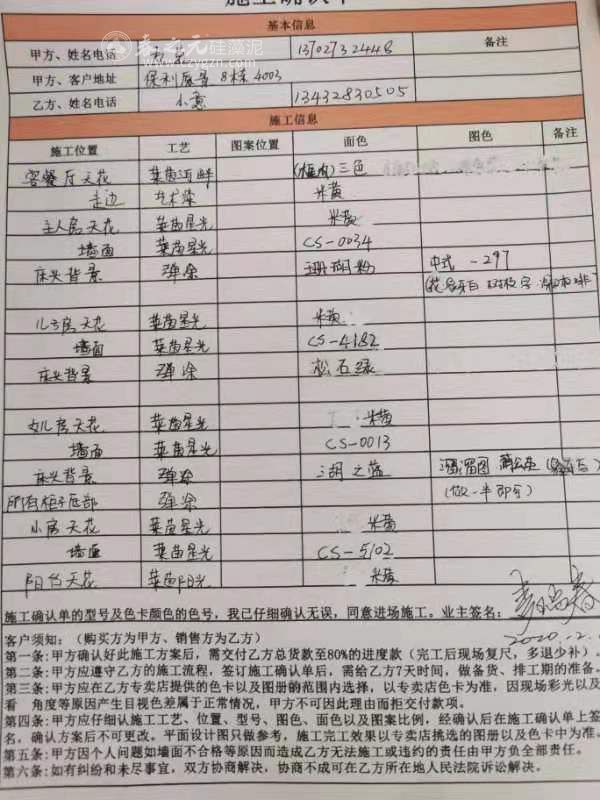 施工确认单
春之元硅藻泥
www.czygzn.com
基本信息
甲方、姓名电话 13702732448 备注
甲方、客户地址 保利 8栋4003
乙方、姓名电话 小意 13432830505
施工信息
施工位置 工艺 图案位置 面色 图色 备注
客餐厅天花 莱茵海畔 三色
走边 艺术漆 米黄
主人房天花 莱茵星光 米黄
墙面 莱茵星光 CS-0034
床头背景 弹涂 珊瑚粉 中式-297
儿子房天花 莱茵星光 米黄
墙面 莱茵星光 CS-4182
床头背景 弹涂 松石绿
女儿房天花 莱茵星光 米黄
墙面 莱茵星光 CS-0013
床头背景 弹涂 湖之蓝 蒲公英
所有柜子底部 弹涂 (做一半即可)
小房天花 莱茵星光 米黄
墙面 莱茵星光 CS-5102
阳台天花 莱茵阳光 米黄
施工确认单的型号及色卡颜色的色号，我已仔细确认无误，同意进场施工。业主签名：
2020.12.
客户须知：（购买方为甲方、销售方为乙方）
第一条:甲方确认好此施工方案后，需交付乙方总货款至80%的进度款（完工后现场复尺，多退少补）。
第二条:甲方应遵守乙方的施工流程，签订施工确认单后，需给乙方7天时间，做备货、排工期的准备。
第三条:甲方应在乙方专卖店提供的色卡以及图册的范围内选择，以专卖店色卡为准，因现场彩光以及
看 角度等原因产生目视色差属于正常情况，甲方不可因此理由而拒交付款项。
第四条:甲方应仔细认施工工艺、位置、型号、图色、面色以及图案比例，经确认后在施工确认单上签
名，确认方案后不可更改。平面设计图只做参考，施工完工效果以专卖店挑选的图册以及色卡中为准。
第五条:甲方因个人问题如墙面不合格等原因而造成乙方无法施工或违约的责任由甲方负全部责任。
第六条:如有纠纷和未尽事宜，双方协商解决，协商不成可在乙方所在地人民法院诉讼解决。